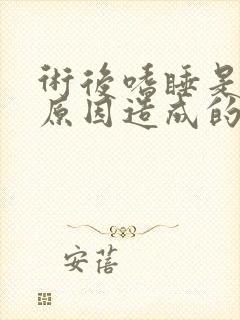 術後嗜睡是
原因造成的
安蓓